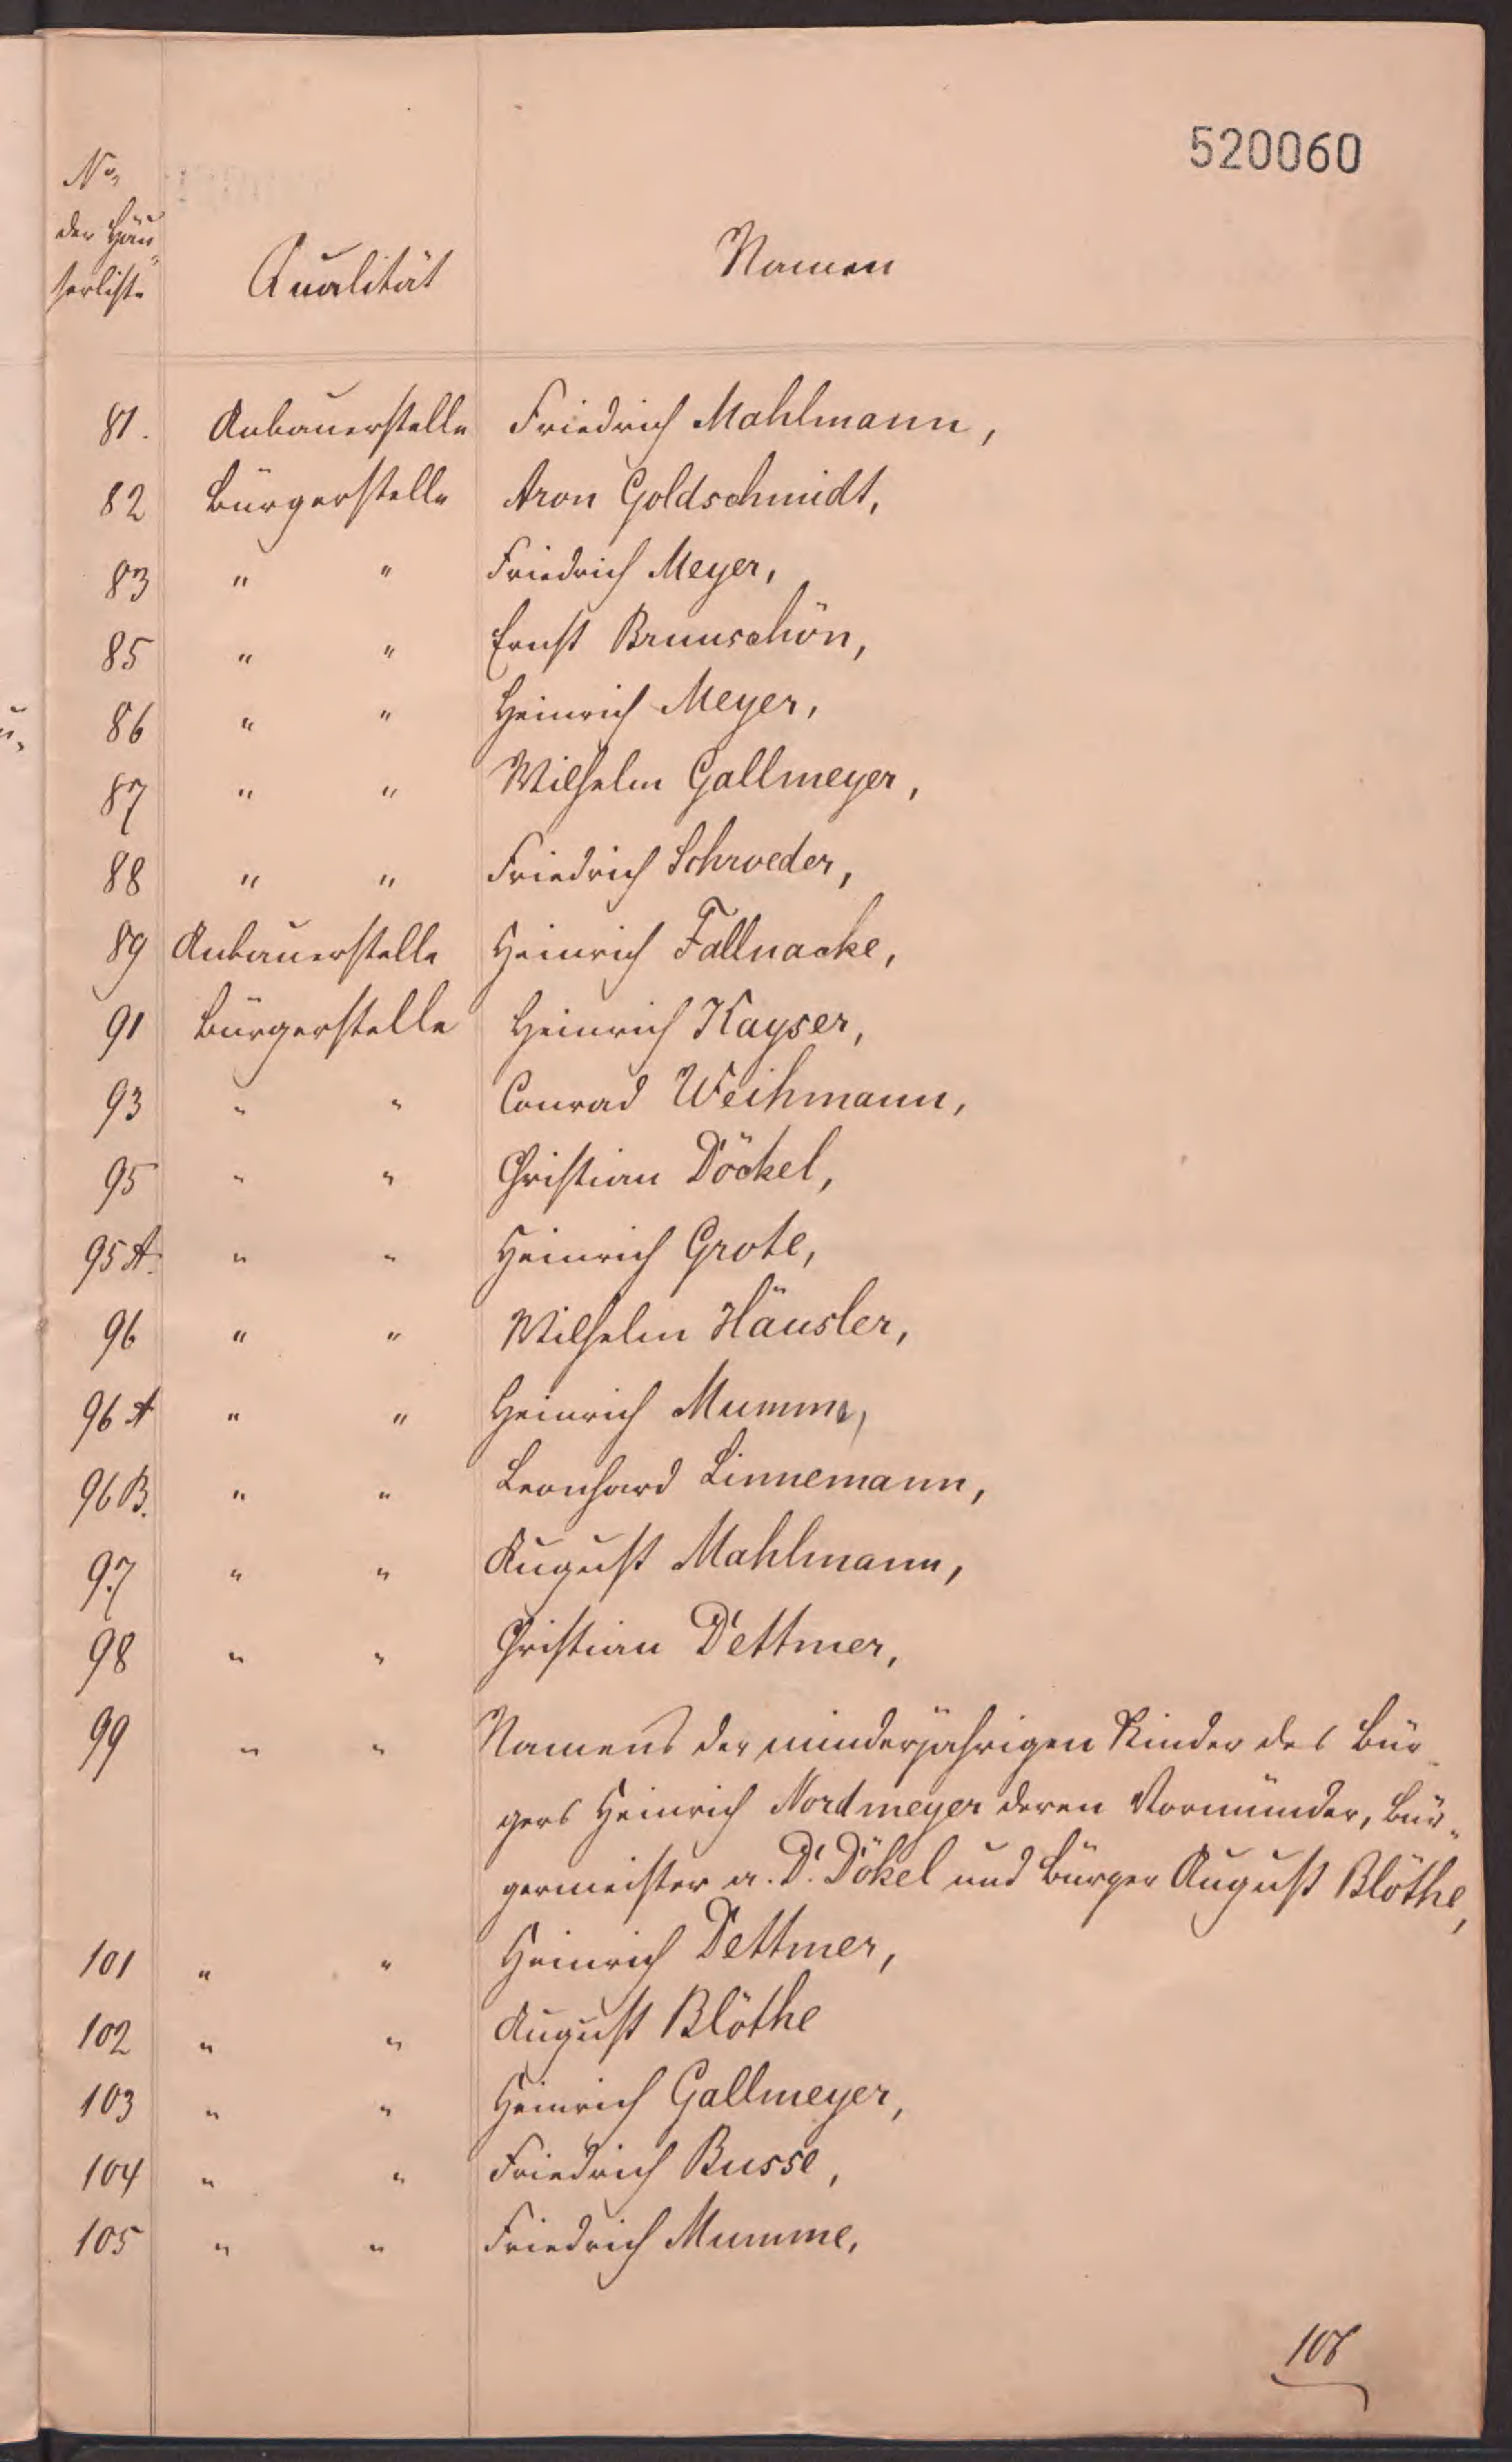 520060
No.
der Häu„
serliste
Qualität
Namen
81. Anbauerstelle Friedrich Mahlmann,
82 Bürgerstelle Aron Goldschmidt,
83 " " Friedrich Meyer,
85 " " Ernst Brunschön,
86 " " Heinrich Meyer,
87 " " Wilhelm Gallmeyer,
88 " " Friedrich Schroeder,
89 Anbauerstelle Heinrich Fallnacke,
91 Bürgerstelle Heinrich Kayser,
93 " " Conrad Weihmann,
95 " " Christian Döckel,
95 A. " " Heinrich Grote,
96 " " Wilhelm Häusler,
96 A " " Heinrich Mumme,
96 B. " " Leonhard Linnemann,
97 " " August Mahlmann,
98 " " Christian Dettmer,
99 " " Namens der minderjährigen Kinder des Bür„
gers Heinrich Nordmeyer deren Vormünder, Bür„
germeister a. D. Dökel und Bürger August Blöthe,
101 " " Heinrich Dettmer,
102 " " August Blöthe
103 " " Heinrich Gallmeyer,
104 " " Friedrich Busse,
105 " " Friedrich Mumme,